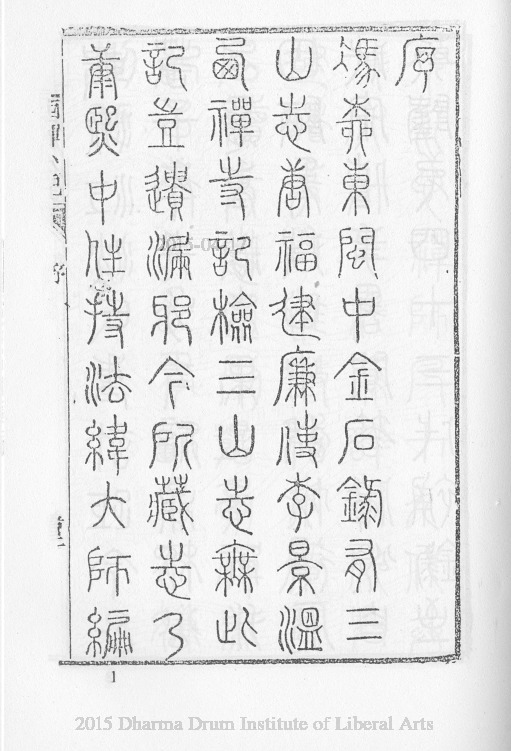 序
馮柳東閩中金石錄有三
山志唐福建廉使李景溫
西禪寺記檢三山志無此
記豈遺漏邪今所藏志乃
康熙中住持法緯大師編
序
1
2015 Dharma Drum Institute of Liberal Arts